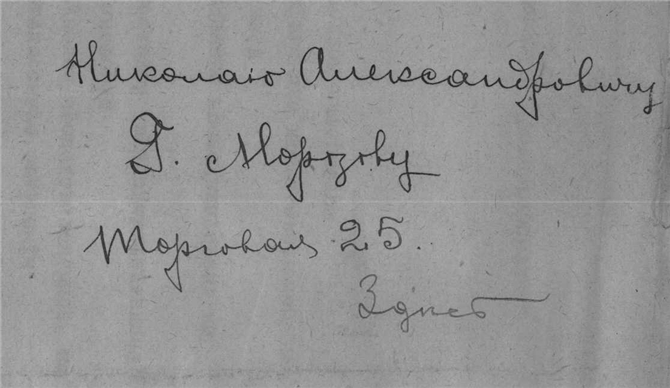 Николаю Александровичу
Г. Морозову
Торговая 25.
Здѣсь